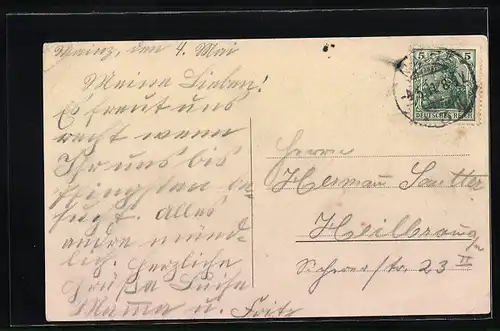 Mainz, den 4. Mai
Meine Lieben!
Es freut uns
recht wenn
Ihr uns bis
Pfingsten be-
sucht. Alles
andre münd-
lich. Herzliche
Grüße Luise
Mama u. Fritz
5 5
DEUTSCHES REICH
Herrn
Hermann Sautter
Heilbronn a/N
Str. 23 II